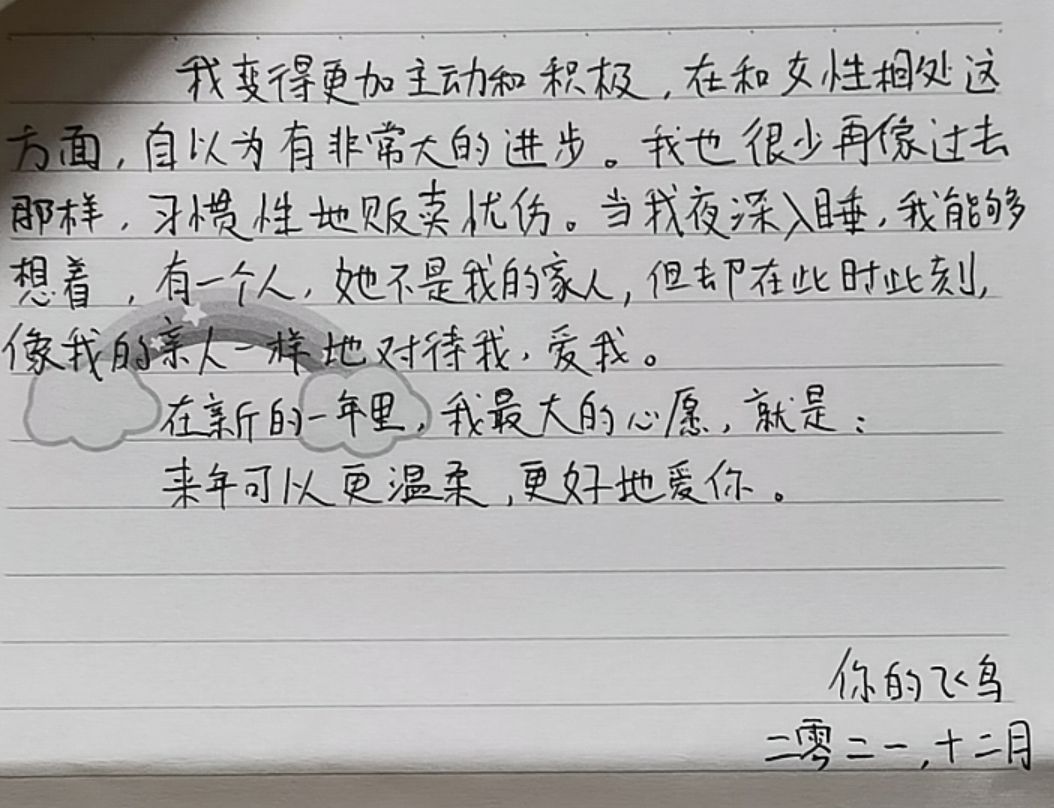 我变得更加主动和积极，在和女性相处这
方面，自以为有非常大的进步。我也很少再像过去
那样，习惯性地贩卖忧伤。当我夜深入睡，我能够
想着，有一个人，她不是我的家人，但却在此时此刻，
像我的亲人一样地对待我，爱我。
在新的一年里，我最大的心愿，就是：
来年可以更温柔，更好地爱你。
你的飞鸟
二零二一，十二月